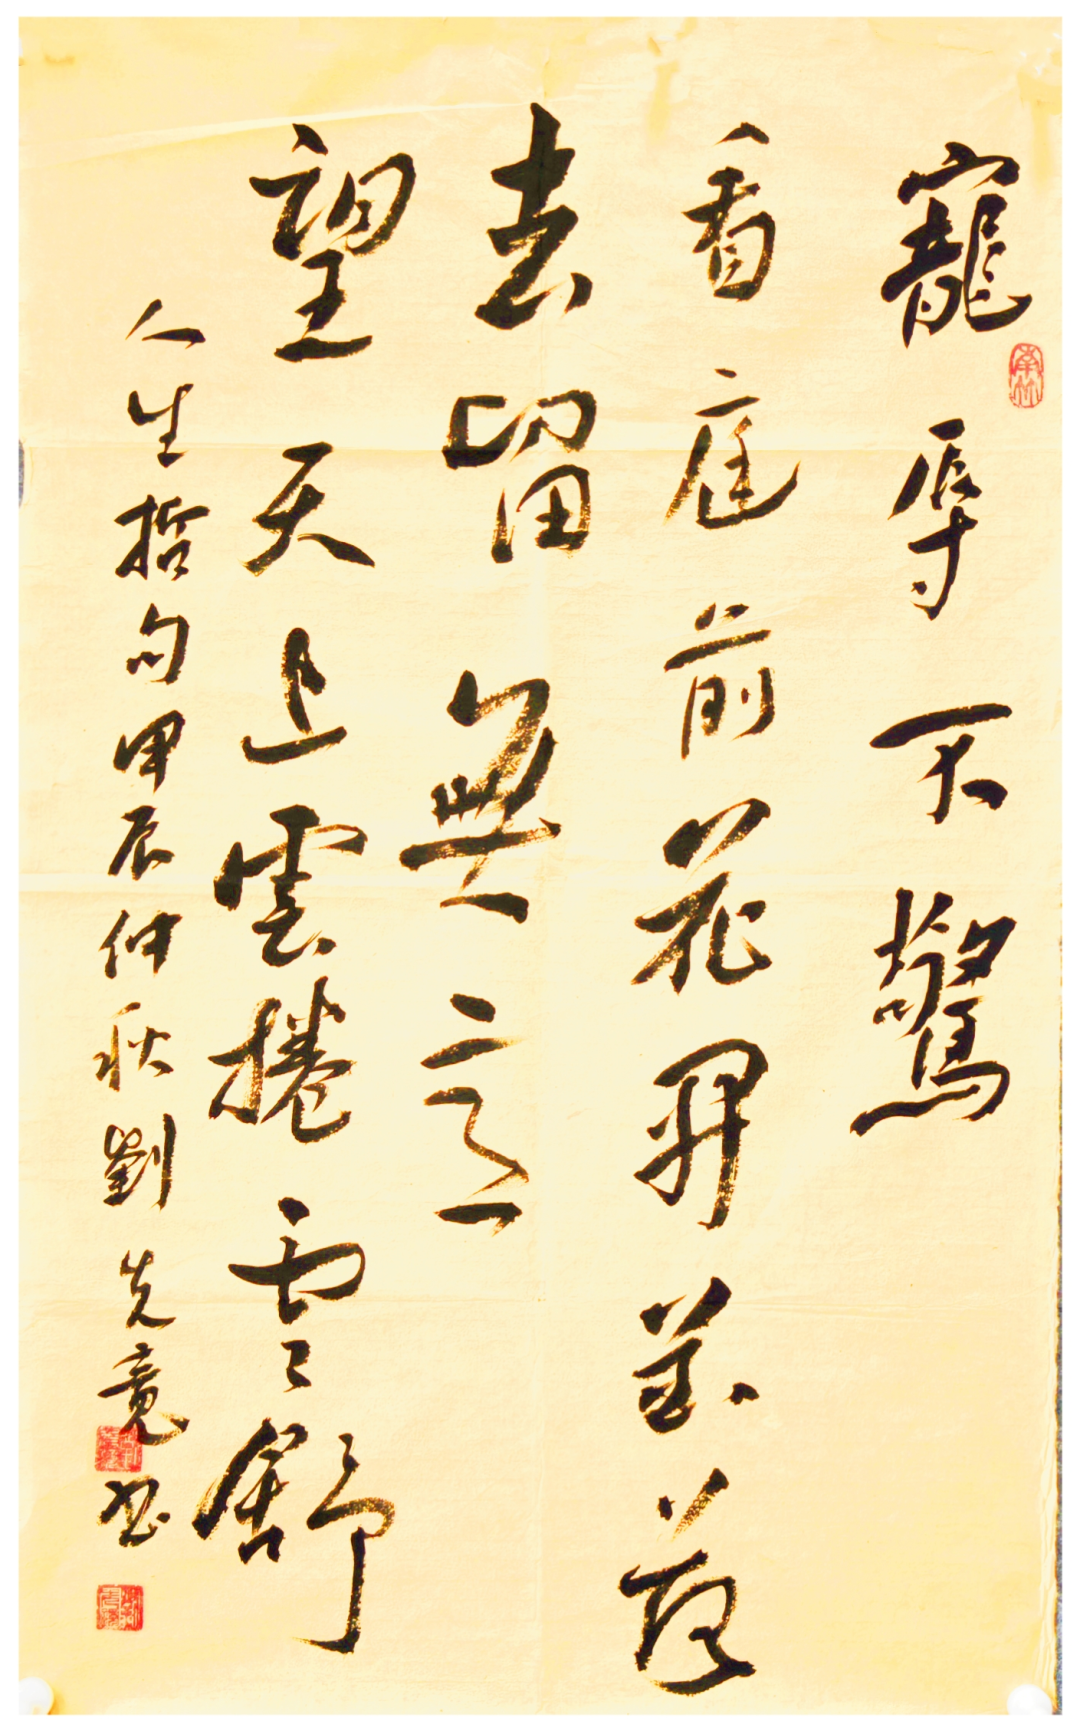 寵辱不驚
看庭前花開花落
去留無意
望天上雲捲雲舒
人生哲句甲辰仲秋劉先竟書